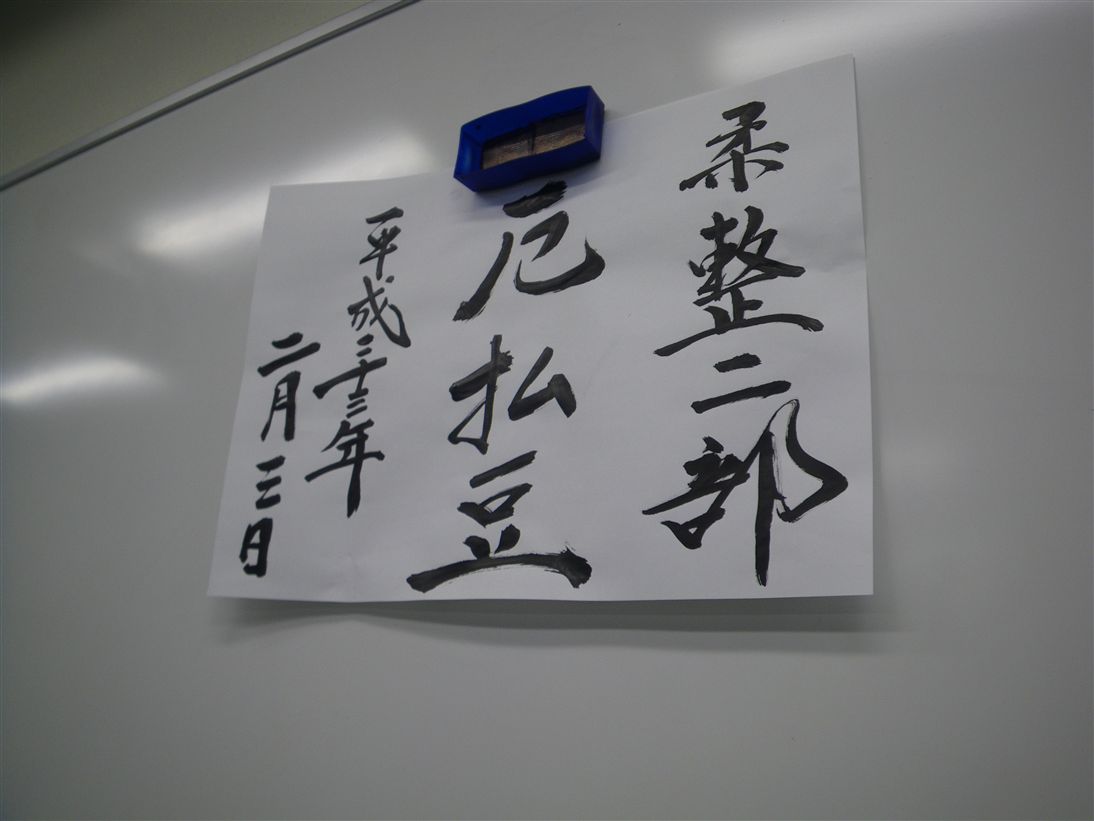 柔整二部
厄払豆
平成二十三年
二月三日